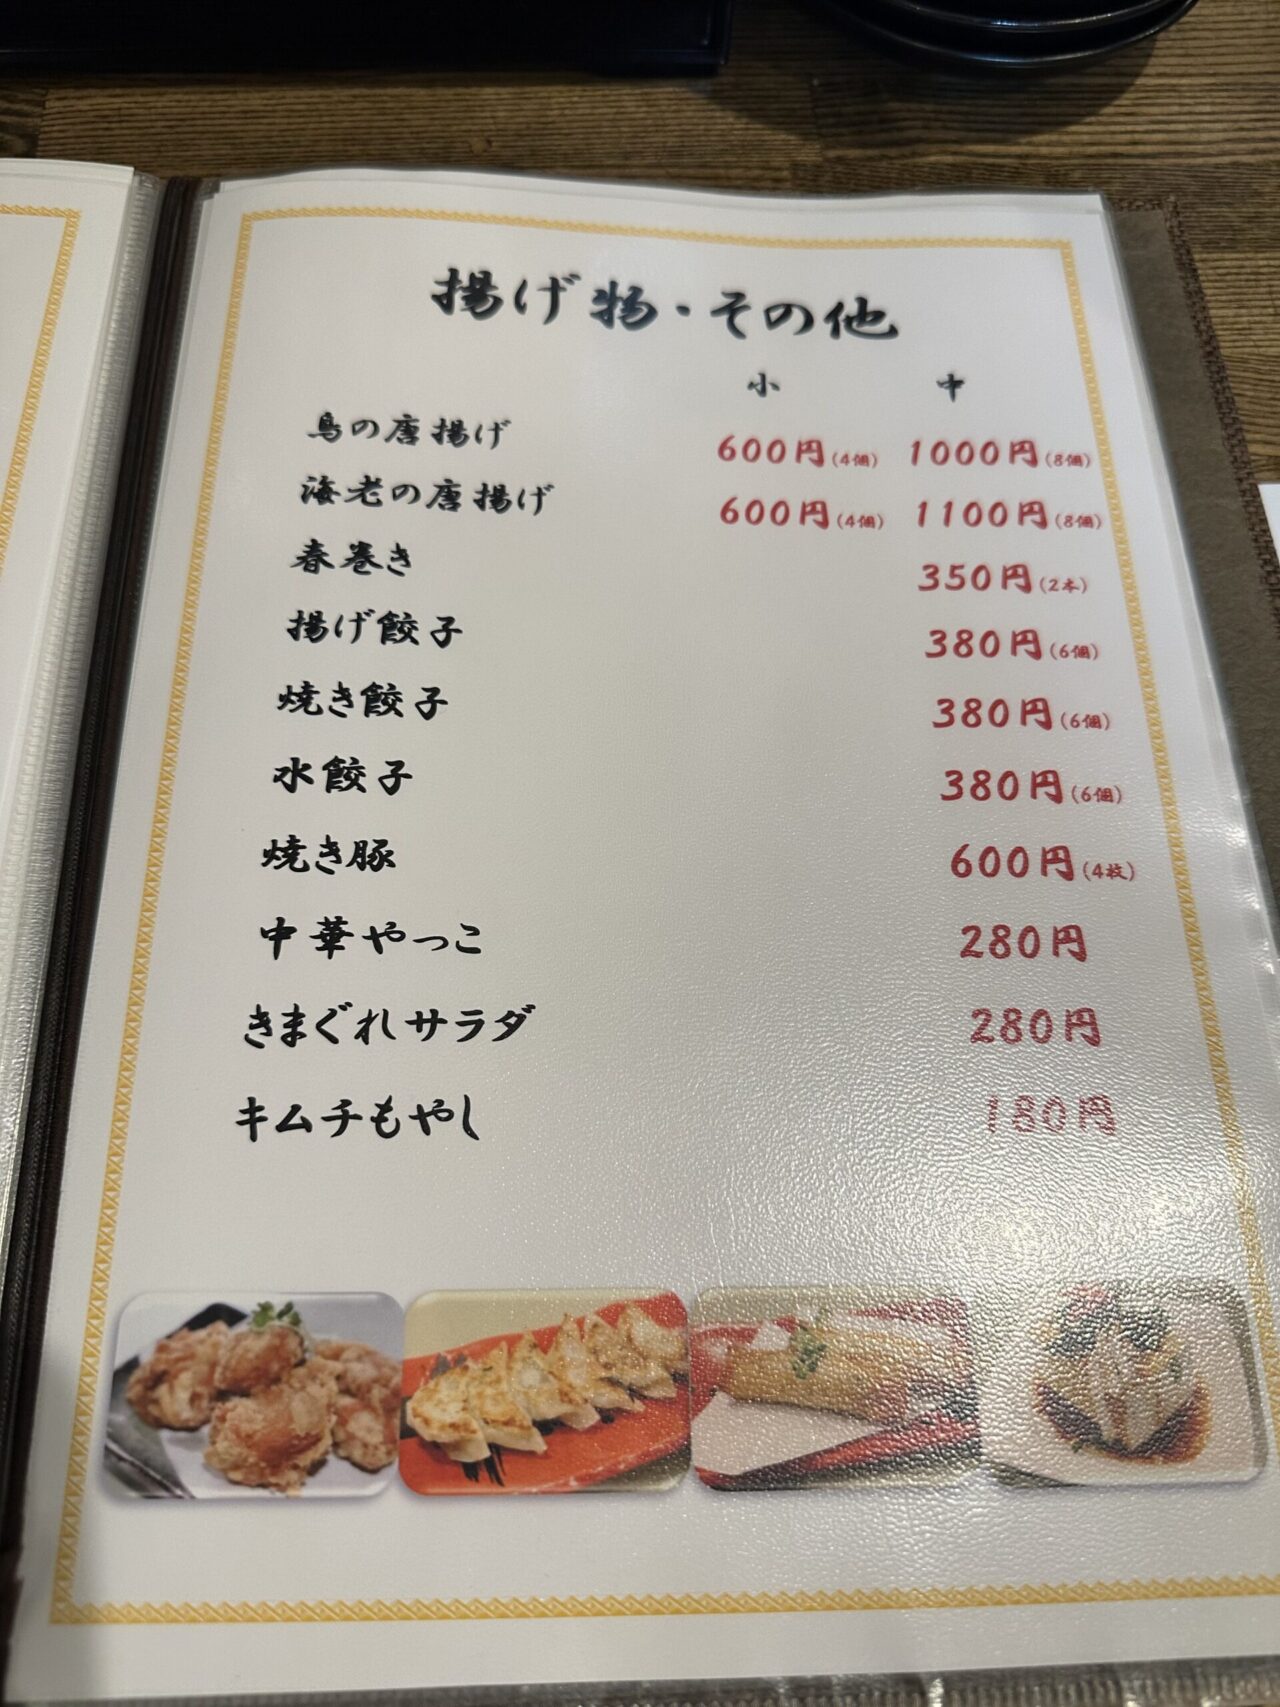 揚げ物・その他
小 中
鳥の唐揚げ 600円(4個) 1000円(8個)
海老の唐揚げ 600円(4個) 1100円(8個)
春巻き 350円(2本)
揚げ餃子 380円(6個)
焼き餃子 380円(6個)
水餃子 380円(6個)
焼き豚 600円(4枚)
中華やっこ 280円
きまぐれサラダ 280円
キムチもやし 180円